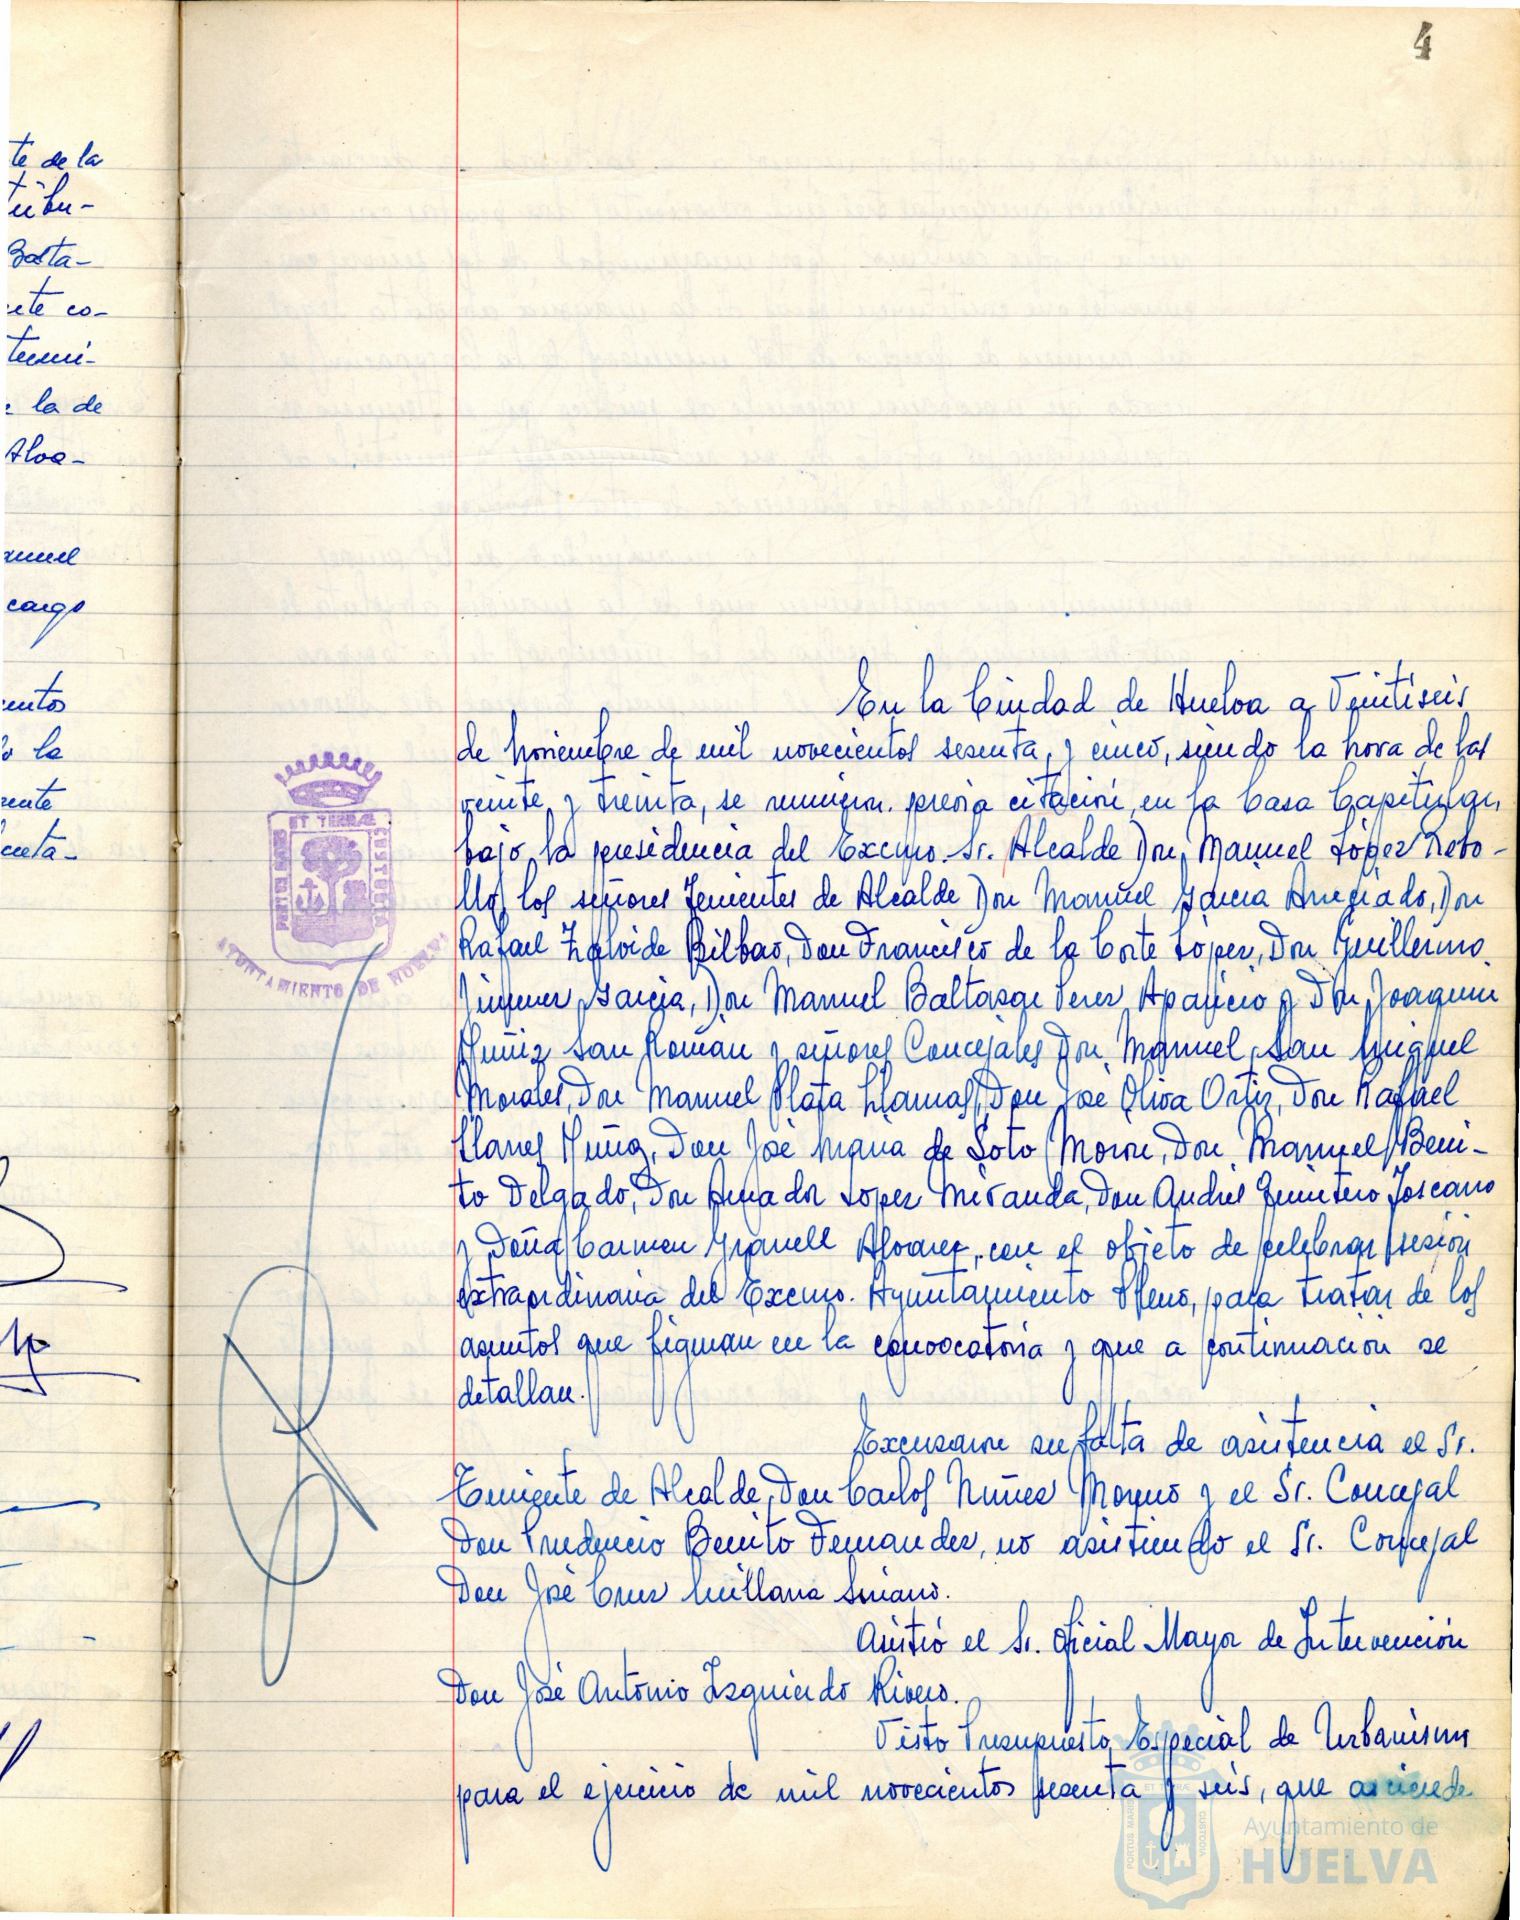 4
te de la
tribu-
Balta-
ente co-
termi-
e la de
Alva-
anuel
cargo
entos
o la
ente
cuta-
En la Ciudad de Huelva a Veintiseis
de Noviembre de mil novecientos sesenta y cinco, siendo la hora de las
veinte y treinta, se reunieron previa citación, en la Casa Capitular,
bajo la presidencia del Excmo. Sr. Alcalde Don Manuel López Rebo-
llo, los señores Tenientes de Alcalde Don Manuel Garcia Arreciado, Don
Rafael Zalvide Bilbao, Don Francisco de la Corte López, Don Guillermo
Jimenez Garcia, Don Manuel Baltasar Perez Aparicio y Don Joaquin
Muñiz San Román y señores Concejales Don Manuel San Miguel
Morales, Don Manuel Plata Llamas, Don José Oliva Ortiz, Don Rafael
Llanes Muñoz, Don José Maria de Soto Morón, Don Manuel Beni-
to Delgado, Don Amador López Miranda, Don Andrés Quintero Toscano
y Doña Carmen Granell Alvarez, con el objeto de celebrar sesión
extraordinaria del Excmo. Ayuntamiento Pleno, para tratar de los
asuntos que figuran en la convocatoria y que a continuación se
detallan.
Excusaron su falta de asistencia el Sr.
Teniente de Alcalde, Don Carlos Nuñez Moreno y el Sr. Concejal
Don Prudencio Benito Fernandez, no asistiendo el Sr. Concejal
Don José Cruz Soriano.
Asistió el Sr. Oficial Mayor de Intervención
Don José Antonio Izquierdo Rivero.
Visto Presupuesto Especial de Urbanismo
para el ejercicio de mil novecientos sesenta y seis, que asciende
PORTUS MARIS
ET TERRÆ
CUSTODIA
AYUNTAMIENTO DE HUELVA
PORTUS MARIS
ET TERRÆ
CUSTODIA
Ayuntamiento de
HUELVA